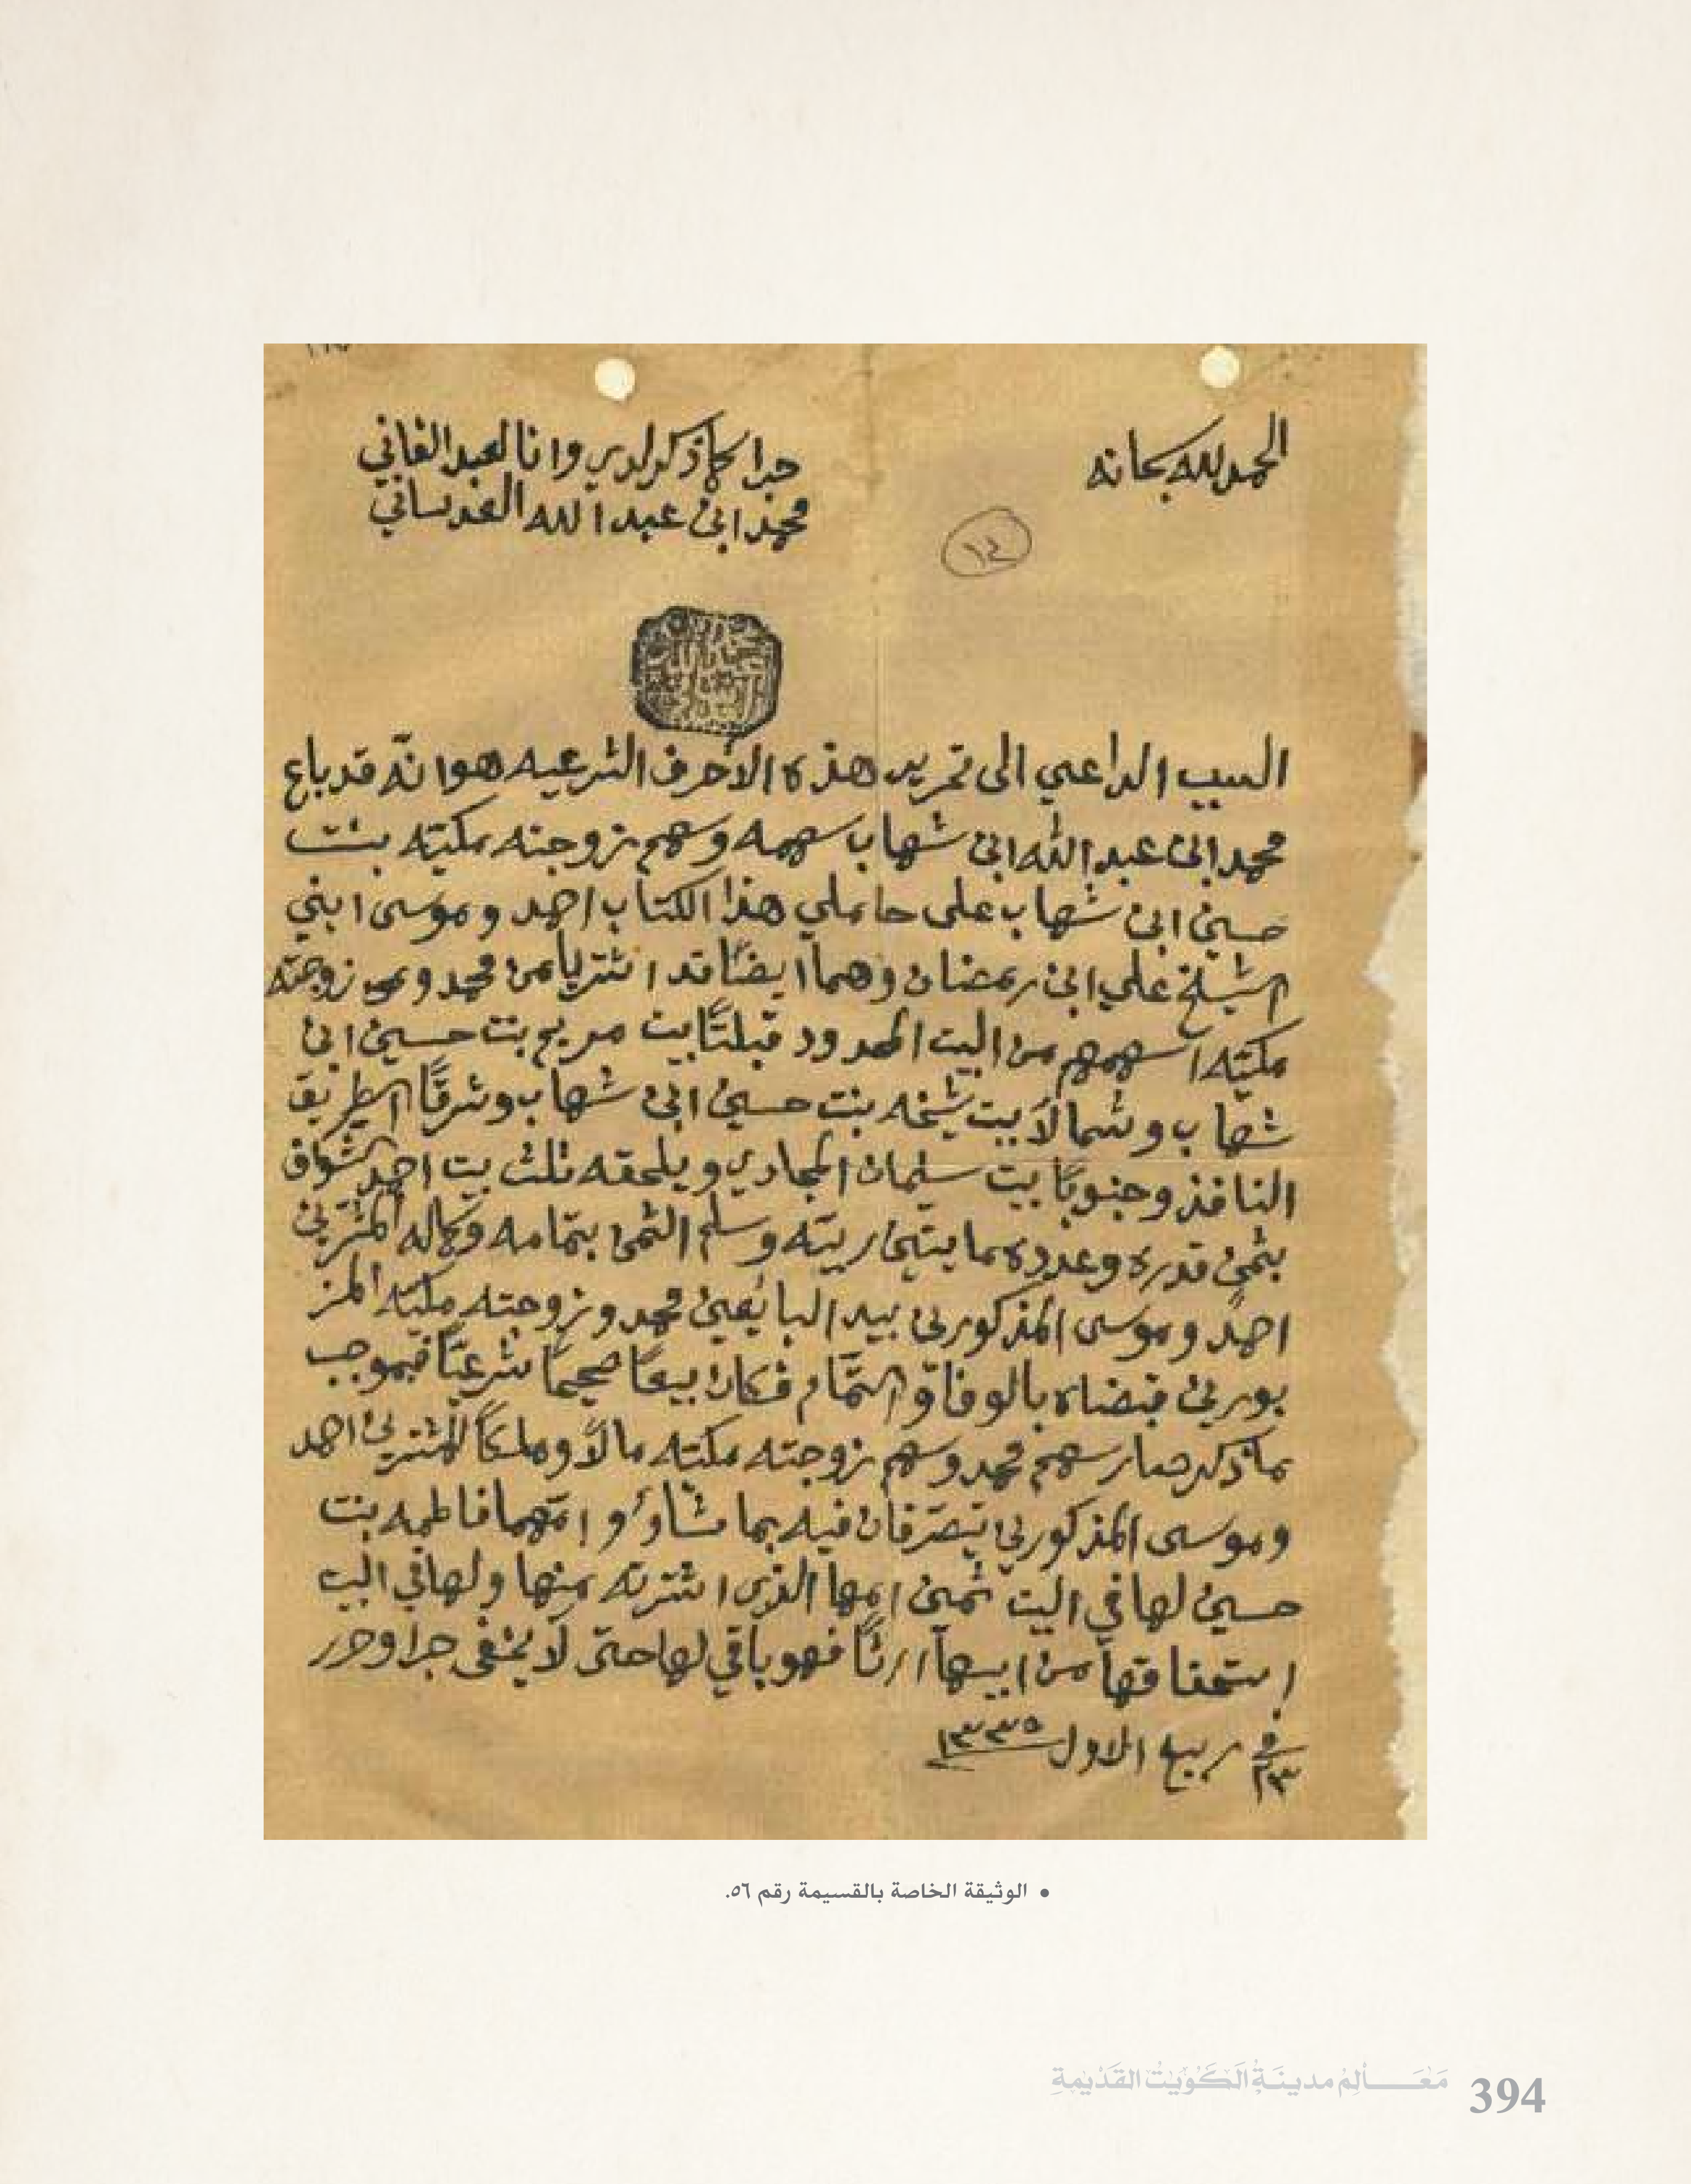 الحمد لله سبحانه
جرا كما ذكر لدي وانا العبد الفاني
محمد ابن عبد الله العدساني
١٤
السبب الداعي الى تحرير هذه الأحرف الشرعيه هو انّه قد باع
محمد ابن عبد الله ابن شهاب سهمه وسهم زوجته مكيّه بنت
حسين ابن شهاب على حاملي هذا الكتاب احمد وموسى ابني
الشيخ علي ابن رمضان وهما ايضًا قد اشتريا من محمد و زوجته
مكيّه اسهمهم من البيت المحدود قبلتًا بيت مريم بنت حسين ابن
شهاب وشمالاً بيت شيخه بنت حسين ابن شهاب وشرقًا الطريق
النافذ وجنوبًا بيت سليمان المجادي ويلحقه ثلث بيت احمد الشواف
بثمنٍ قدره وعدده مايتين ربيّه وسلم الثمن بتمامه وكماله المشترين
احمد وموسى المذكورين بيد البائعين محمد وزوجته مكيّه المز
بورين قبضاه بالوفا والتّمام فكان بيعًا صحيحًا شرعيًّا فبموجب
ماذكر صار سهم محمد وسهم زوجته مكيّه مالاً وملكًا للمشترين احمد
وموسى المذكورين يتصرّفان فيه بما شاؤو امّهما فاطمه بنت
حسين لها في البيت ثمين امها الذي اشترته منها ولها في البيت
استحقاقها من ابيها ارثًا فهو باقي لها حتى لا يخفى جرا وحرر
في ٢٣ ربيع الاول ١٣٣٥
• الوثيقة الخاصة بالقسيمة رقم ٥٦.
مَعَالِمُ مدينَةِ الكُوَيْتِ القَدِيْمَةِ 394